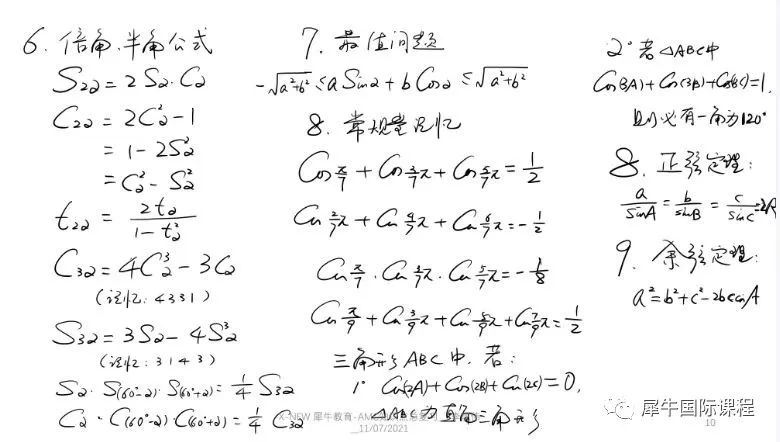 6. 倍角.半角公式
S2α = 2Sα·Cα
C2α = 2Cα² - 1
= 1 - 2Sα²
= Cα² - Sα²
t2α = 2tα / (1 - tα²)
C3α = 4Cα³ - 3Cα
(记忆: 4331)
S3α = 3Sα - 4Sα³
(记忆: 3143)
Sα·S(60°-α)·S(60°+α) = 1/4 S3α
Cα·C(60°-α)·C(60°+α) = 1/4 C3α
7. 最值问题
-√(a²+b²) ≤ a Sinα + b Cosα ≤ √(a²+b²)
8. 常规量记忆
Cos π/7 + Cos 3/7 π + Cos 5/7 π = 1/2
Cos 2/7 π + Cos 4/7 π + Cos 6/7 π = -1/2
Cos π/7 · Cos 3/7 π · Cos 5/7 π = -1/8
Cos π/9 + Cos 3/9 π + Cos 5/9 π + Cos 7/9 π = 1/2
三角形 ABC中, 若:
1° Cos(2A) + Cos(2B) + Cos(2C) = 0,
△ABC为 三角形
2° 若△ABC中
Cos(3A) + Cos(3B) + Cos(3C) = 1,
则必有一角为120°
8. 正弦定理:
a/sinA = b/sinB = c/sinC = 2R
9. 余弦定理:
a² = b² + c² - 2bc cosA
-NEW 犀牛教育-AM
_11/07/2021
10
犀牛国际课程